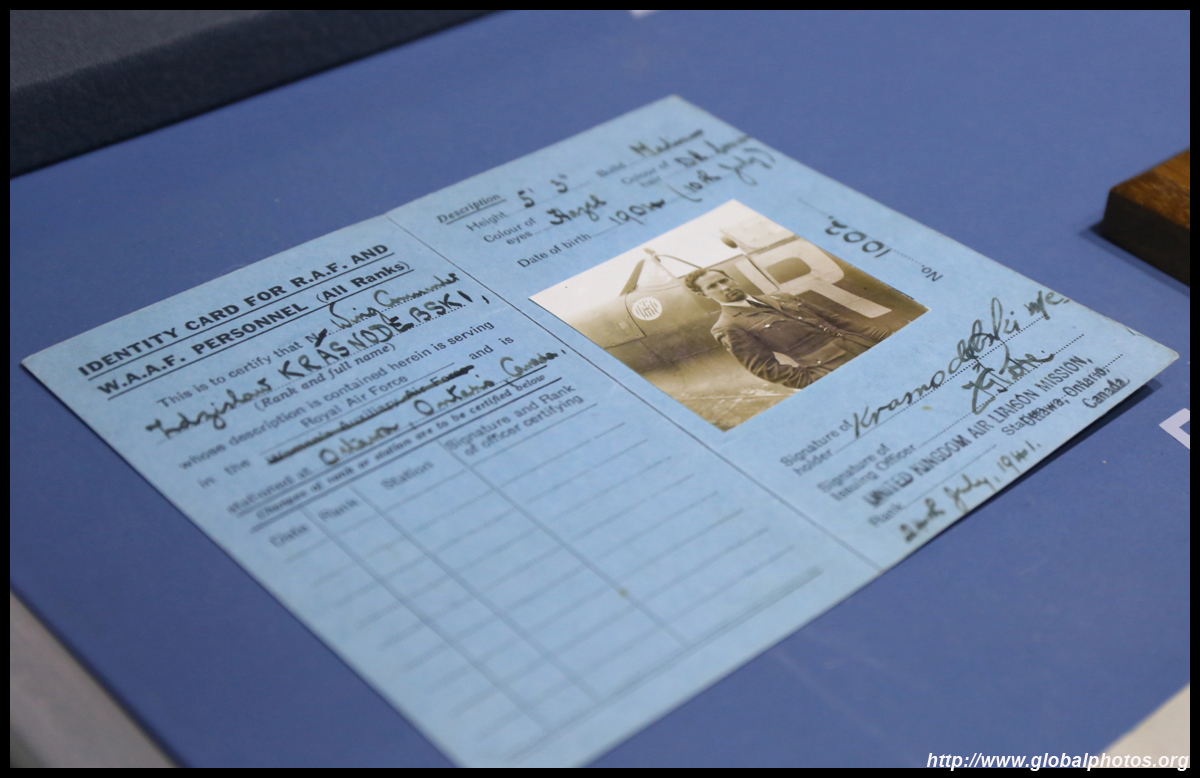 IDENTITY CARD FOR R.A.F. AND
W.A.A.F. PERSONNEL (All Ranks)
This is to certify that Wing Commander
Zdzislaw KRASNODEBSKI,
(Rank and full name)
whose description is contained herein is serving
in the Royal Air Force and is
stationed at Ottawa, Ontario, Canada,
Changes of rank or station are to be certified below
Date Rank Station Signature and Rank
of officer certifying
Description
Height 5' 3" Build Medium
Colour of
eyes Hazel Colour of
hair DK
Date of birth 1904 (10th July)
No. 1001
R
Signature of
holder Krasnodebski
Signature of
Issuing Officer
UNITED KINGDOM AIR LIAISON MISSION,
Rank Ottawa, Ontario,
Canada
24th July, 1941.
http://www.globalphotos.org